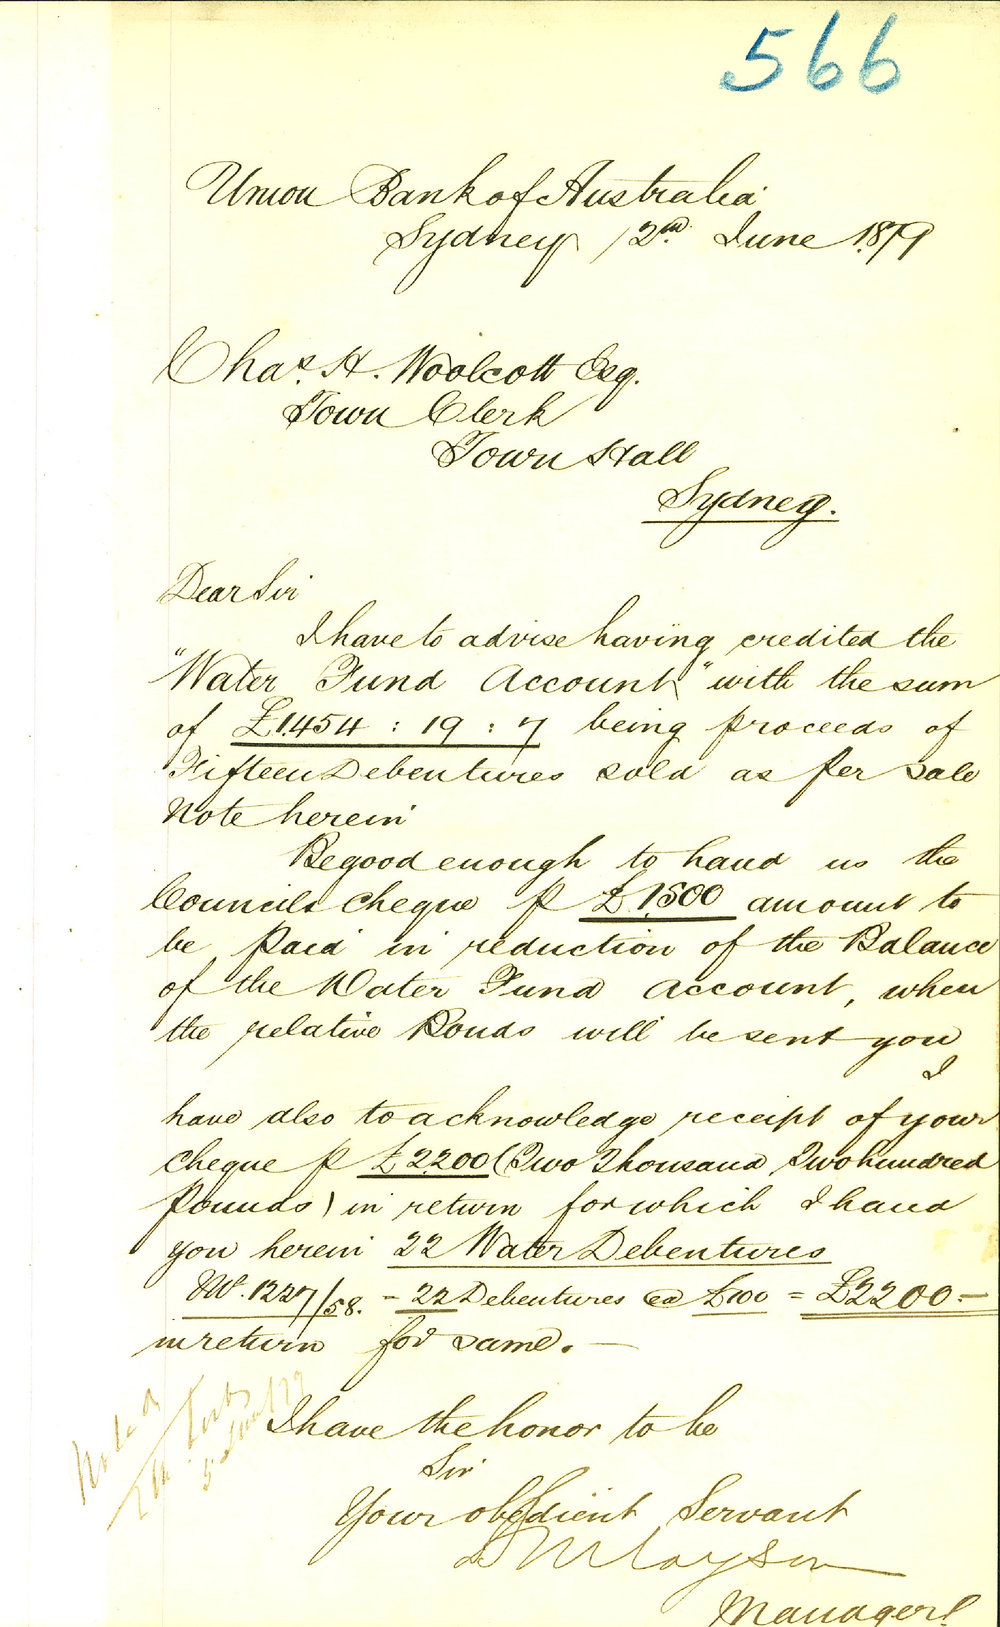 566
Union Bank of Australia
Sydney 2nd June 1879
Chas. H. Woolcott Esq.
Town Clerk
Town Hall
Sydney.
Dear Sir
I have to advise having credited the
"Water Fund Account" with the sum
of £1454 : 19 : 7 being proceeds of
Fifteen Debentures sold as per Sale
Note herein
Be good enough to hand us the
Councils cheque p £1,500 amount to
be paid in reduction of the Balance
of the Water Fund Account, when
the relative Bonds will be sent you
I
have also to acknowledge receipt of your
cheque p £2,200 (Two Thousand, Two hundred
Pounds) in return for which I hand
you herein 22 Water Debentures
1227/58. - 22 Debentures ea £100 = £2200 -
in return for same. —
I have the honor to be
Sir
Your obedient Servant
Manager